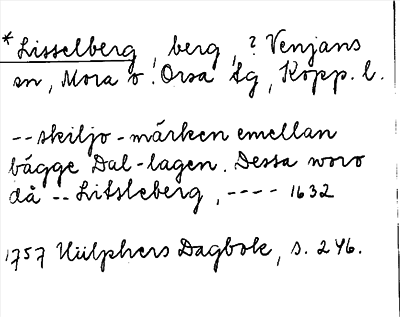 * Lisselberg, berg, ? Venjans
sn, Mora o. Orsa tg, Kopp. l.
-- skiljo-märken emellan
bägge Dal-lagen. Dessa woro
då -- Litsleberg, ---- 1632
1757 Hülphers Dagbok, s. 246.